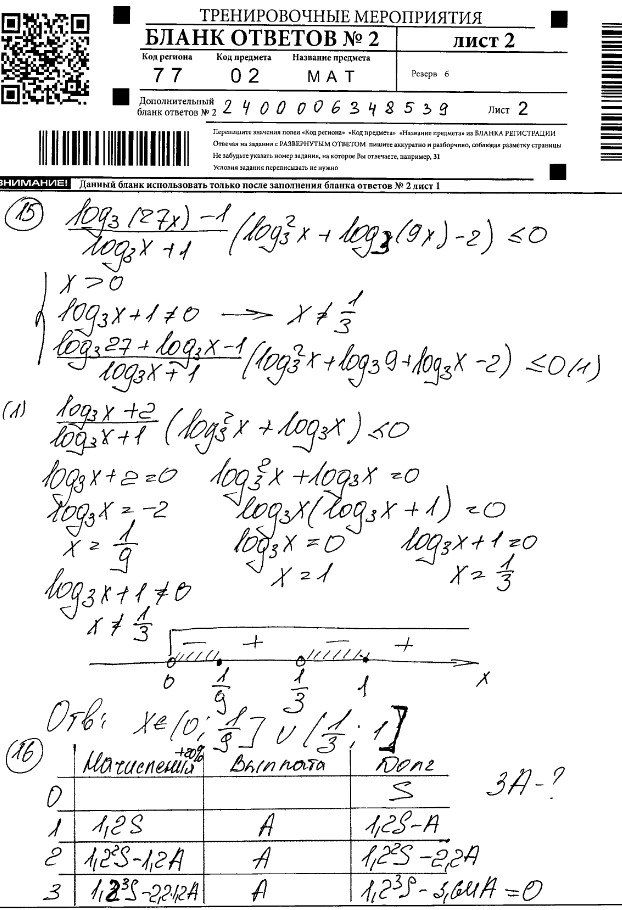 ТРЕНИРОВОЧНЫЕ МЕРОПРИЯТИЯ
БЛАНК ОТВЕТОВ № 2 лист 2
Код региона Код предмета Название предмета
77 02 МАТ Резерв 6
Дополнительный бланк ответов № 2 2400006348539 Лист 2
Перепишите значения полей «Код региона» «Код предмета» «Название предмета» из БЛАНКА РЕГИСТРАЦИИ
Отвечая на задания с РАЗВЕРНУТЫМ ОТВЕТОМ пишите аккуратно и разборчиво, соблюдая разметку страницы
Не забудьте указать номер задания, на которое Вы отвечаете, например, 31
Условия задания переписывать не нужно
ВНИМАНИЕ! Данный бланк использовать только после заполнения бланка ответов № 2 лист 1
15 (log₃(27x) − 1)/(log₃x + 1) (log₃²x + log₃(9x) − 2) ≤ 0
x > 0
log₃x + 1 ≠ 0 → x ≠ 1/3
(log₃27 + log₃x − 1)/(log₃x + 1) (log₃²x + log₃9 + log₃x − 2) ≤ 0 (1)
(1) (log₃x + 2)/(log₃x + 1) (log₃²x + log₃x) ≤ 0
log₃x + 2 = 0 log₃²x + log₃x = 0
log₃x = −2 log₃x(log₃x + 1) = 0
x = 1/9 log₃x = 0 log₃x + 1 = 0
x = 1 x = 1/3
log₃x + 1 ≠ 0
x ≠ 1/3
− + − +
0 1/9 1/3 1 x
Отв: x ∈ (0; 1/9] ∪ (1/3; 1]
16 Начисления +20% Выплата Долг
0 S 3A − ?
1 1,2S A 1,2S − A
2 1,2²S − 1,2A A 1,2²S − 2,2A
3 1,2³S − 2,2·1,2A A 1,2³S − 3,64A = 0